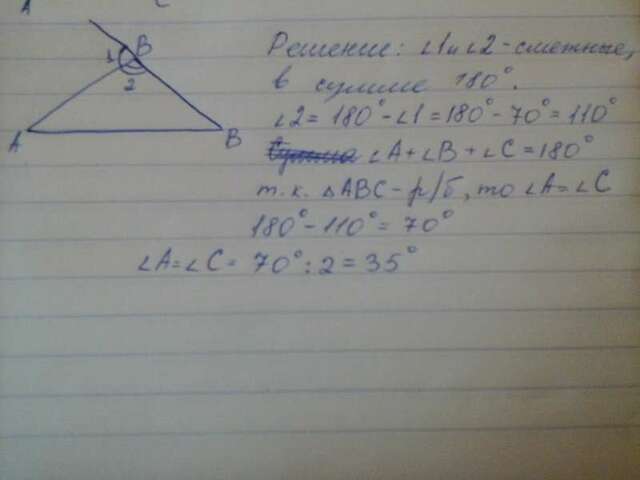 A C
1 B
2
A B
Решение: ∠1 и ∠2 - смежные,
в сумме 180°.
∠2 = 180° - ∠1 = 180° - 70° = 110°
∠A + ∠B + ∠C = 180°
т.к. △ABC - р/б, то ∠A = ∠C
180° - 110° = 70°
∠A = ∠C = 70° : 2 = 35°